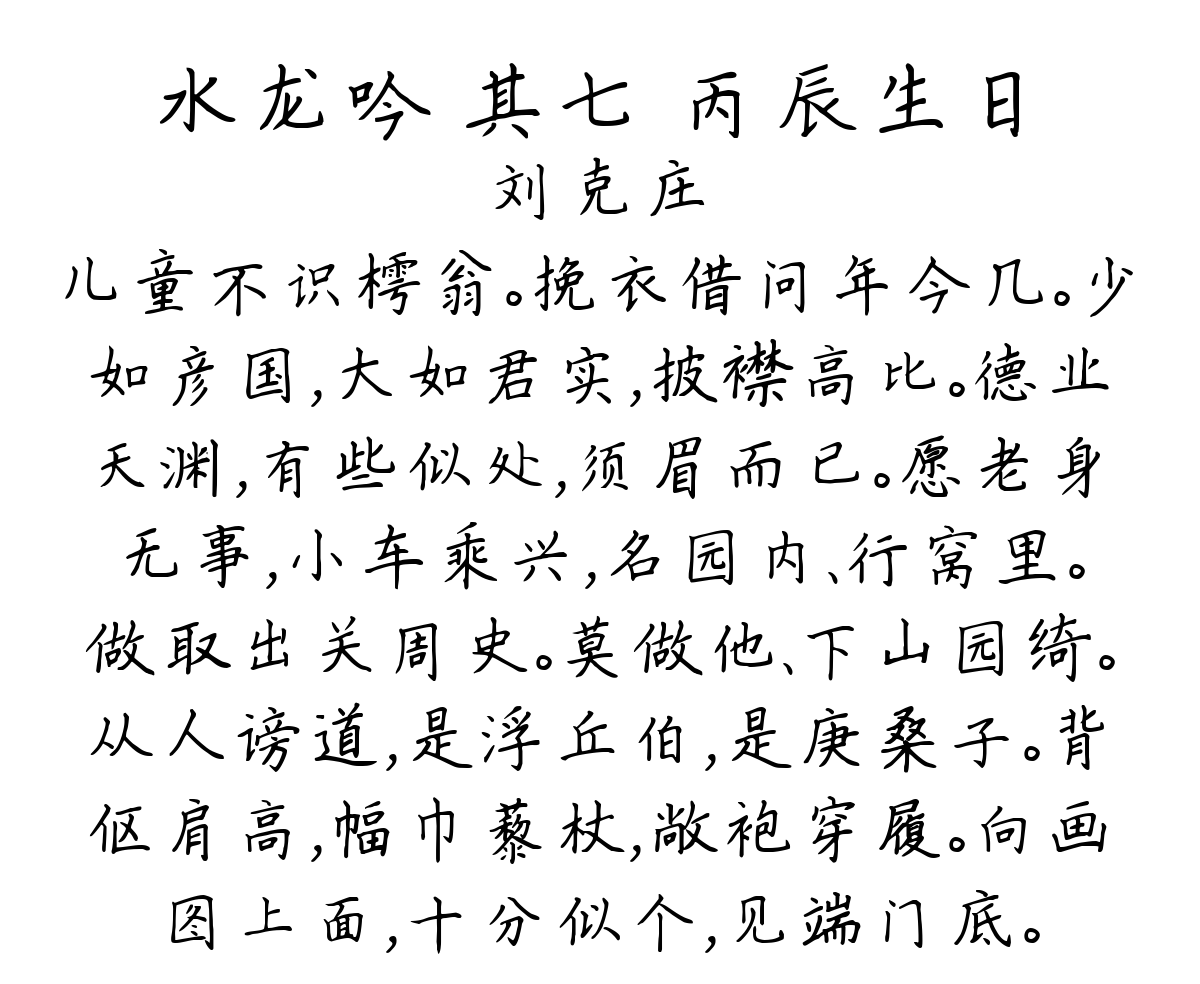 水龙吟 其七 丙辰生日
刘克庄
儿童不识樗翁。挽衣借问年今几。少
如彦国,大如君实,披襟高比。德业
天渊,有些似处,须眉而已。愿老身
无事,小车乘兴,名园内、行窝里。
做取出关周史。莫做他、下山园绮。
从人谤道,是浮丘伯,是庚桑子。背
伛肩高,幅巾藜杖,敞袍穿履。向画
图上面,十分似个,见端门底。